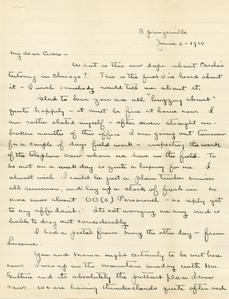 Springerville
June 2 - 1910
My dear Cicero -
What is this new dope about Carlo's
tutoring in Chicago? This is the first I've heard about
it - I wish somebody would tell me about it.
Glad to hear you are all "bugging about"
quite happily - it must be fine at home now. I
am rather elated myself - after seven straight un-
broken months of this office I am going out tomorrow
for a couple of days field work - inspecting the work
of the telephone crew whom we have in the field. To
be out in a week or so quite a buying for me. I
almost wish I could be just a plain timber cruiser
all summer, and lay up a stock of fresh air. No
more news about OO(s) Personnel - no reply yet
to my affidavit. Its not worrying me any and is
liable to drag out considerably.
I had a postal from Mary the other day - from
Lucerne.
You and Mama might certainly to be out here
now. I was up on the mountain Sunday with Mr.
Guthrie and its absolutely the prettiest place I ever
saw. We are having thundershowers quite often and